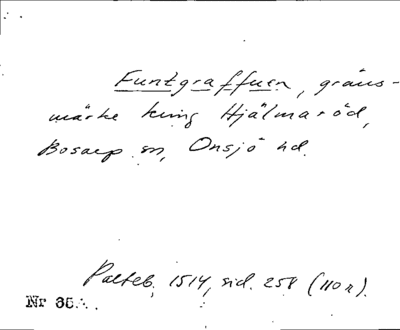 Funtgraffuen, gräns-
märke kring Hjälmaröd,
Bosarp sn, Onsjö hd.
Palteb. 1514, sid. 258 (110 r).
Nr